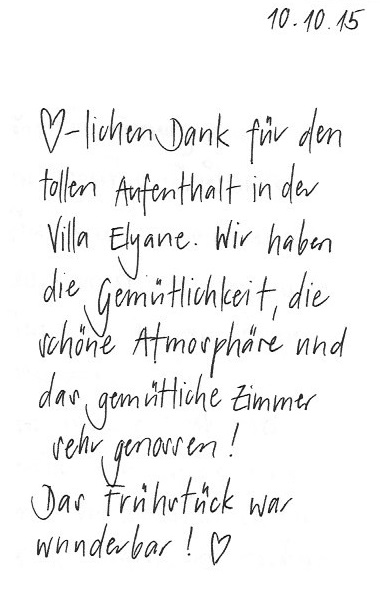 10.10.15
♡-lichen Dank für den
tollen Aufenthalt in der
Villa Elyane. Wir haben
die Gemütlichkeit, die
schöne Atmosphäre und
das gemütliche Zimmer
sehr genossen!
Das Frühstück war
wunderbar! ♡